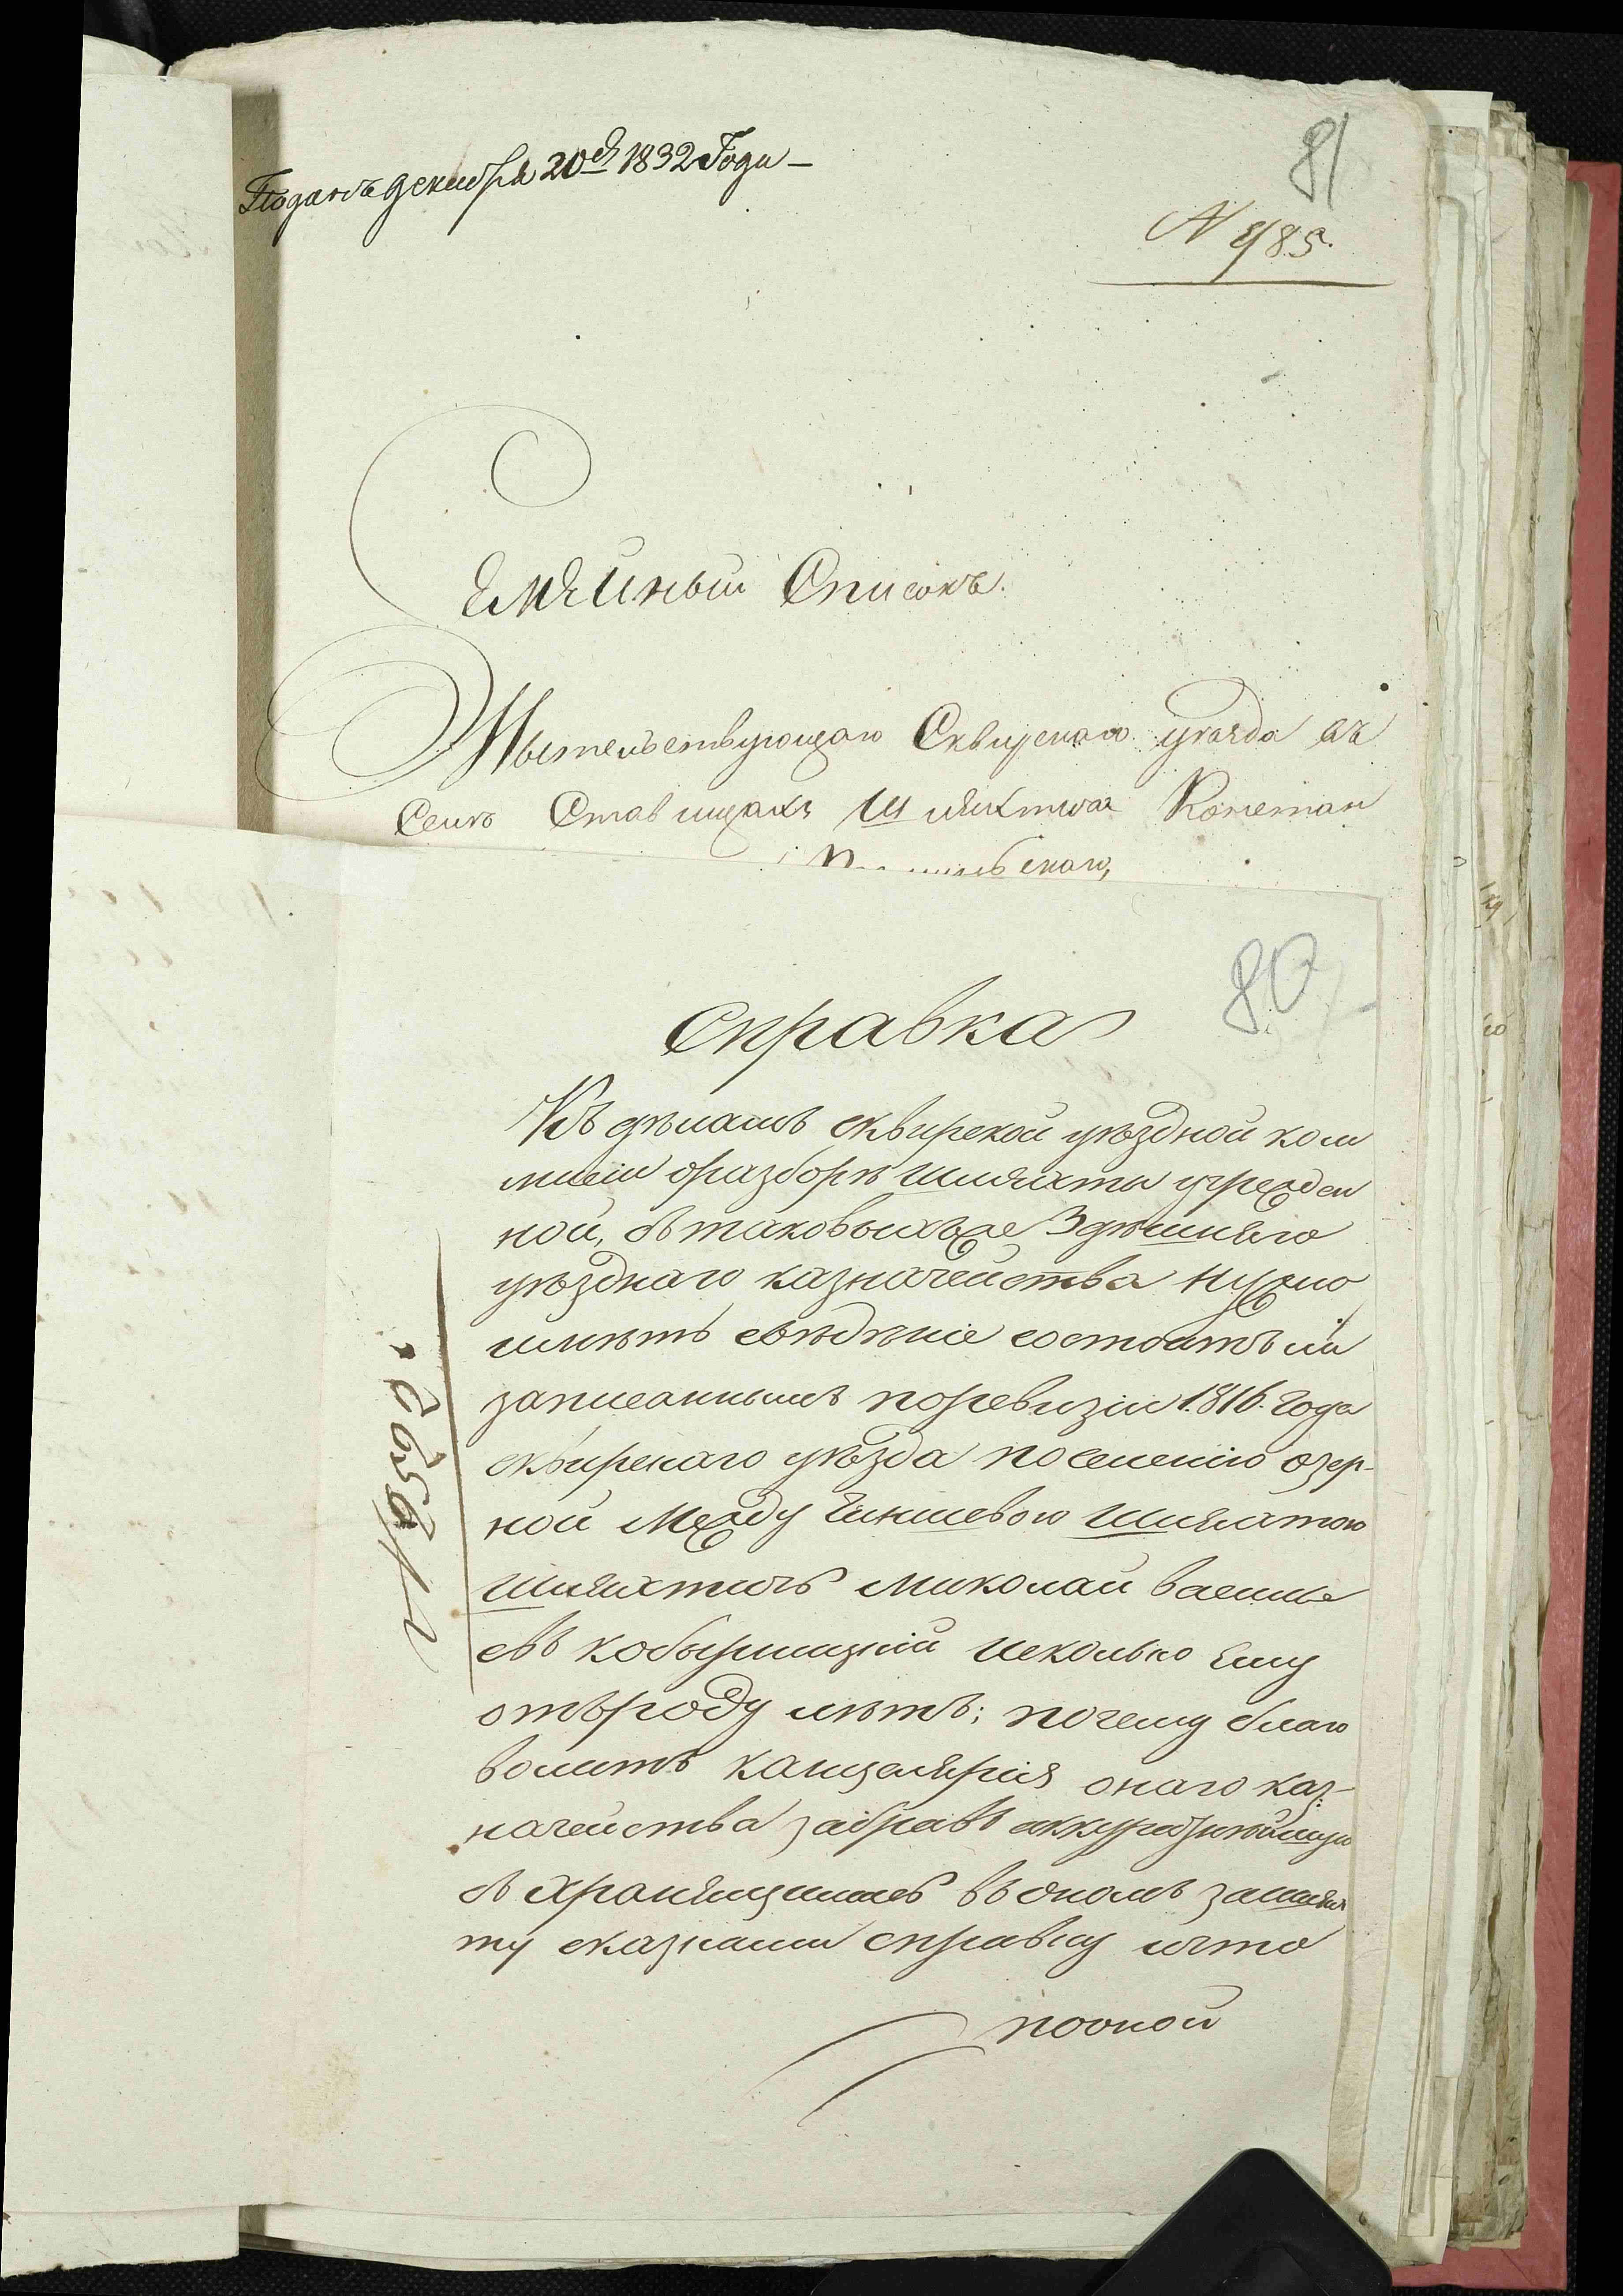 Поданъ декабря 20го 1832 Года
81
N 985.
Семейный Списокъ.
Жытельствующаго Сквирскаго уезда въ
Селѣ Ставищахъ Шляхтича
скаго,
80
Справка
Къ дѣламъ сквирской уѣздной ком
мисіи оразборѣ шляхты учрежден
ной, съ таковыхъже Здѣшняго
уѣзднаго казначейства нужно
имѣть свѣдѣніе состоитъ ли
записаннымъ поревизіи 1816. Года
сквирскаго уѣзда поселенію озер-
ной Между Чиншевою шляхтою
шляхтичъ Миколай василье
въ исколько ему
отъроду лѣтъ; почему благо
волитъ канцелярія онаго каз-
начейства забравъ аккуратнѣйшую
съ хранящихся въ ономъ зашлях
ту сказками справку ичто
пооной
N 6592.